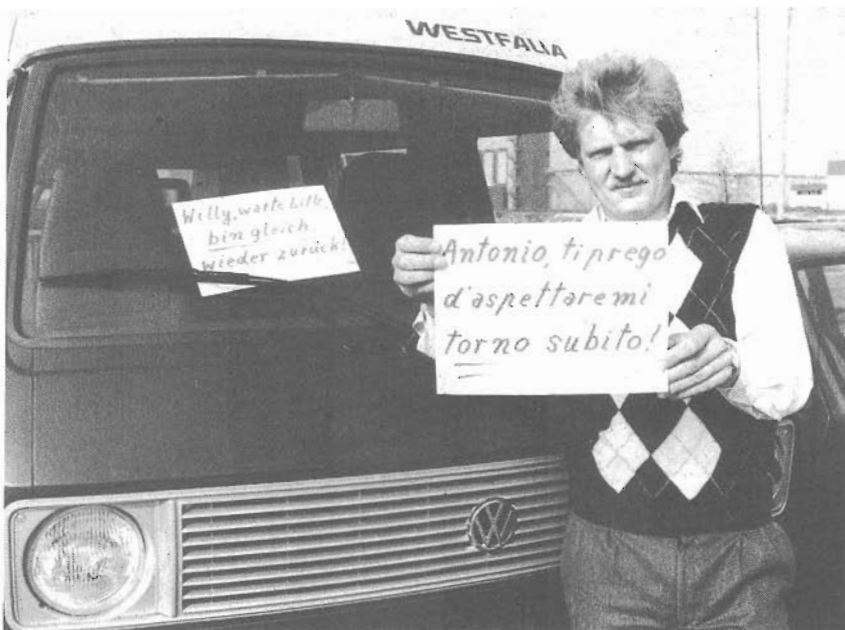 WESTFALIA
Willy, warte bitte,
bin gleich
wieder zurück!
Antonio, ti prego
d'aspettaremi
torno subito!
VW